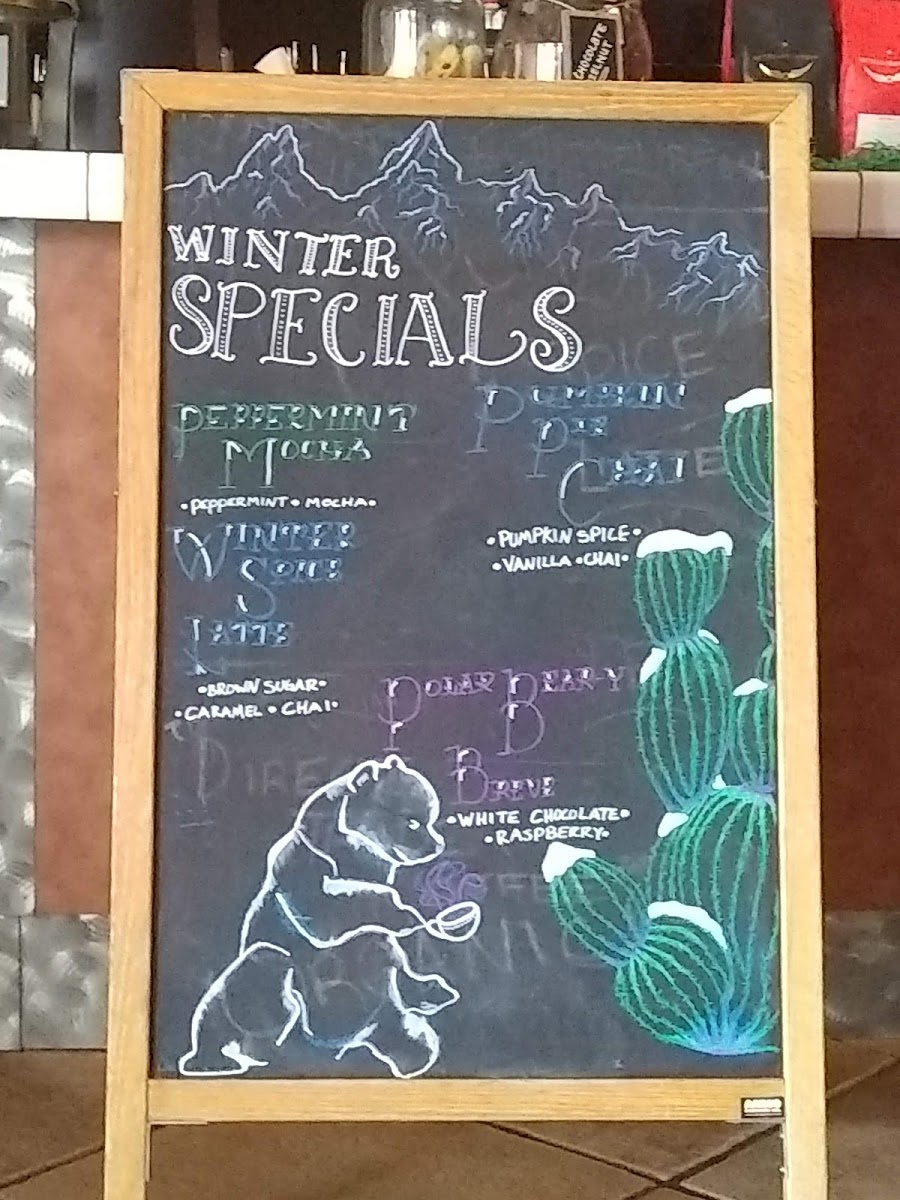 CHOCOLATE
HAZELNUT
WINTER
SPECIALS
PEPPERMINT
MOCHA
•PEPPERMINT • MOCHA•
WINTER
SPICE
LATTE
•BROWN SUGAR•
•CARAMEL • CHAI•
PUMPKIN
PIE
CHAI
•PUMPKIN SPICE•
•VANILLA •CHAI•
POLAR BEAR-Y
BREVE
•WHITE CHOCOLATE•
•RASPBERRY•
DIRE